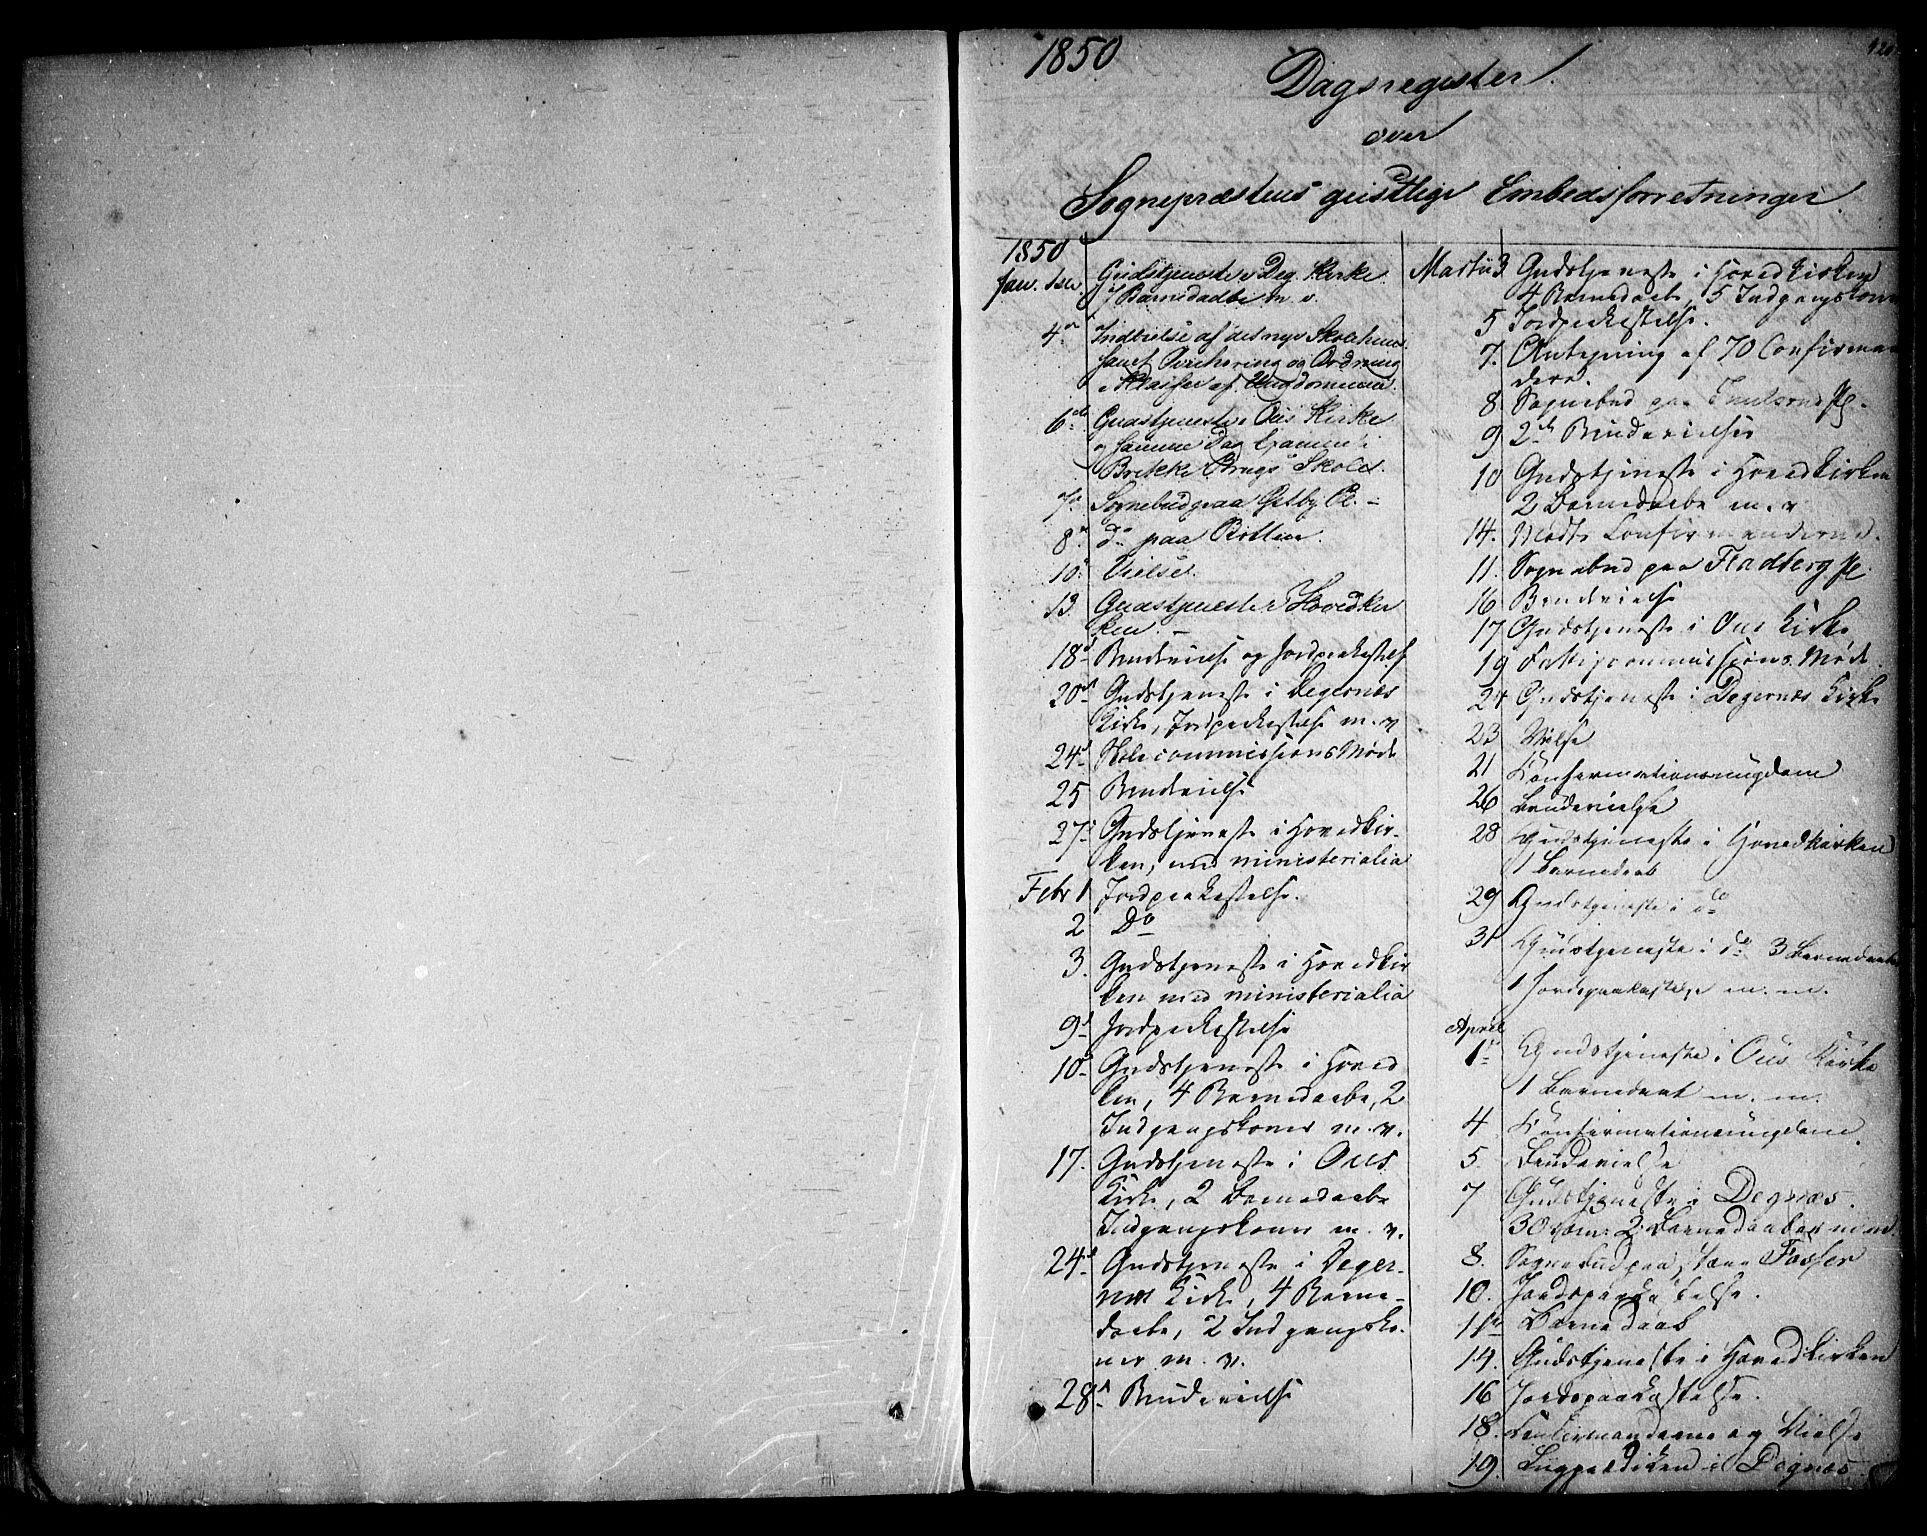 1850
Dagsregister
over
Sognepræstens geistlige Embedsforretninger.
1850
Jan. 1ste Gudstjeneste i Deg. Kirke
1 Barnedaab m. v.
4de Indvielse af det nye Skolehuus
samt og Ordning
i Klasser af Ungdommene.
6te Gudstjeneste i Ous Kirke
og samme Dag Examen i
Brekke Brugs Skole.
7de Sognebud paa Østby Pl. -
8de do paa
10. Vielse.
13 Gudstjeneste i Hovedkir
ken. -
18d Brudevielse og Jordpaakastelse
20de Gudstjeneste i Degernæs
Kirke, Jordpaakastelse m. v
24d Skolecommissions Møde
25 Brudevielse
27d Gudstjeneste i Hovedkir-
ken, med ministerialia
Febr 1 Jordpaakastelse.
2 Do
3. Gudstjeneste i Hovedkir
ken med ministerialia
9d Jordpaakastelse
10d Gudstjeneste i Hoved
ken, 4 Barnedaabe, 2
Indgangskoner m. v.
17. Gudstjeneste i Ous
Kirke, 2 Barnedaabe
Indgangskoner m. v.
24d Gudstjeneste i Deger-
næs Kirke, 4 Barne-
daabe, 2 Indgangsko-
ner m. v.
28d Brudevielse
Martii 3. Gudstjeneste i Hovedkirken
4 Barnedaabe, 5 Indgangskoner
5 Jordpaakastelse.
7. Antegning af 70 Confirman
dere.
8 Sognebud paa
9 2de Brudevielser
10 Gudstjeneste i Hovedkirken
2 Barnedaabe m. v
14. Mødte Confirmanderne.
11. Sognebud paa Fladberg Pl.
16 Brudevielse
17 Gudstjeneste i Ous Kirke
19 Fattigcommissions Møde.
24 Gudstjeneste i Degernæs Kirke
23 Vielse
21 Konfirmationsungdom
26 Brudevielse
28 Gudstjeneste i Hovedkirken
1 Barnedaab
29 Gudstjeneste i do
31 Gudstjeneste i do 3 Barnedaabe
1 Jordspaakastelse m. m.
April
1ste Gudstjeneste i Ous Kirke
1 Barnedaab m. m.
4 Konfirmationsungdom.
5. Brudevielse
7 Gudstjeneste i Degnæs.
30 Com: 2 Barnedaaber m m.
8. Sognebud paa Fosser
10. Jordspaakastelse.
11te Barnedaab
14. Gudstjeneste i Hovedkirken
16 Jordspaakastelse.
18. Confirmanderne og Vielse
19. i Degnæs